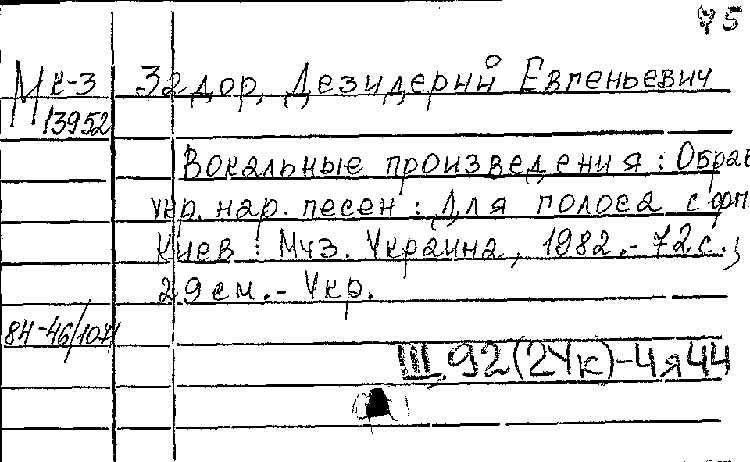 75
Мк-3 Задор, Дезидерий Евгеньевич
13952
Вокальные произведения : Обраб
укр. нар. песен : Для голоса с фп.
Киев : Муз. Украина, 1982.- 72 с.;
29 см.- Укр.
84-46/1041
III 92(2Ук)-4я44